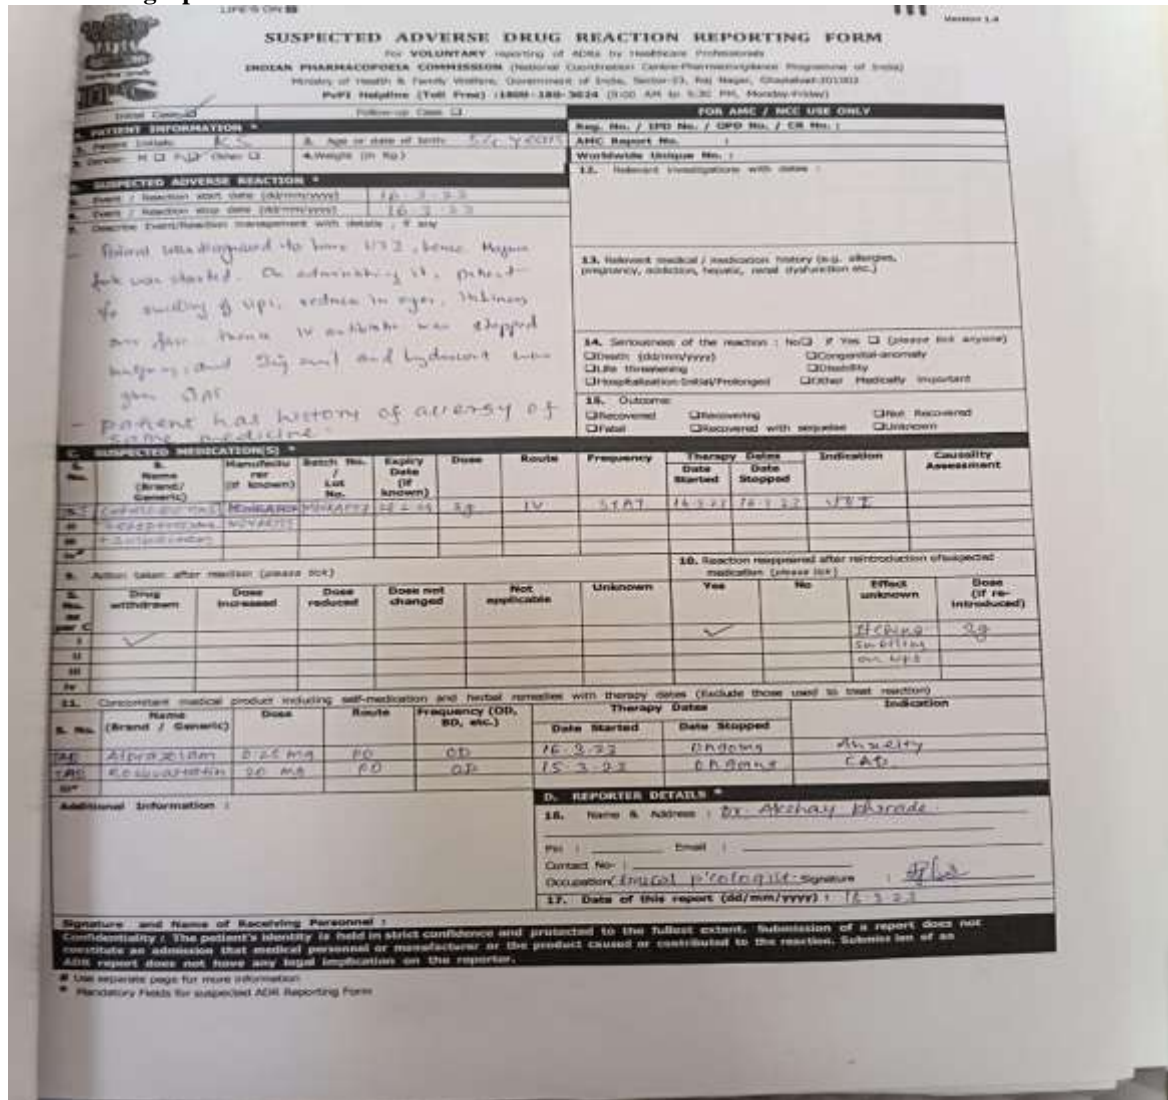 LIFE'S ON
Version 1.4
SUSPECTED ADVERSE DRUG REACTION REPORTING FORM
For VOLUNTARY reporting of ADRs by Healthcare Professionals
INDIAN PHARMACOPOEIA COMMISSION (National Coordination Centre-Pharmacovigilance Programme of India)
Ministry of Health & Family Welfare, Government of India, Sector-23, Raj Nagar, Ghaziabad-201002
PvPI Helpline (Toll Free) :1800-180-3024 (9:00 AM to 5:30 PM, Monday-Friday)
Initial Case Follow-up Case
FOR AMC / NCE USE ONLY
PATIENT INFORMATION *
Reg. No. / IPD No. / OPD No. / CR No. :
Patient Initials KS 2. Age or date of birth 54 years
AMC Report No. :
3. Gender: M F Other 4. Weight (in Kg.)
Worldwide Unique No. :
SUSPECTED ADVERSE REACTION *
12. Relevant investigations with dates :
Event / Reaction start date (dd/mm/yyyy) 16.3.23
Event / Reaction stop date (dd/mm/yyyy) 16.3.23
7. Describe Event/Reaction management with details , if any
- Patient was diagnosed to have UTI, hence
was started. On it, patient
swelling of lips, redness in eyes, itchiness
hence IV antibiotic was stopped
and Inj and hydrocort
- patient has history of allergy of
same medicine.
13. Relevant medical / medication history (e.g. allergies,
pregnancy, addiction, hepatic, renal dysfunction etc.)
14. Seriousness of the reaction : No If Yes (please tick anyone)
Death (dd/mm/yyyy) Congenital-anomaly
Life threatening Disability
Hospitalisation-Initial/Prolonged Other Medically important
15. Outcome:
Recovered Recovering Not Recovered
Fatal Recovered with sequelae Unknown
C. SUSPECTED MEDICATION(S) *
S. No. 8. Name (Brand/ Generic) Manufacturer (if known) Batch No. / Lot No. Expiry Date (if known) Dose Route Frequency Therapy Dates Date Started Date Stopped Indication Causality Assessment
IV STAT 16.3.23 16.3.23 UTI
9. Action taken after reaction (please tick)
10. Reaction reappeared after reintroduction of suspected
medication (please tick)
S. No. as per C Drug withdrawn Dose increased Dose reduced Dose not changed Not applicable Unknown Yes No Effect unknown Dose (if re-introduced)
i ✓ ✓ Itching
ii swelling
iii on lips
iv
11. Concomitant medical product including self-medication and herbal remedies with therapy dates (Exclude those used to treat reaction)
S. No. Name (Brand / Generic) Dose Route Frequency (OD, BD, etc.) Therapy Dates Date Started Date Stopped Indication
TAB Alprazolam 0.25 mg PO OD 15.3.23 Ongoing Anxiety
TAB Rosuvastatin 20 mg PO OD 15.3.23 Ongoing CAD
iii*
Additional Information :
D. REPORTER DETAILS *
16. Name & Address : Dr. Akshay
Pin : Email :
Contact No- :
Occupation: Signature :
17. Date of this report (dd/mm/yyyy) : 16.3.23
Signature and Name of Receiving Personnel :
Confidentiality : The patient's identity is held in strict confidence and protected to the fullest extent. Submission of a report does not
constitute an admission that medical personnel or manufacturer or the product caused or contributed to the reaction. Submission of an
ADR report does not have any legal implication on the reporter.
# Use separate page for more information
* Mandatory Fields for suspected ADR Reporting Form